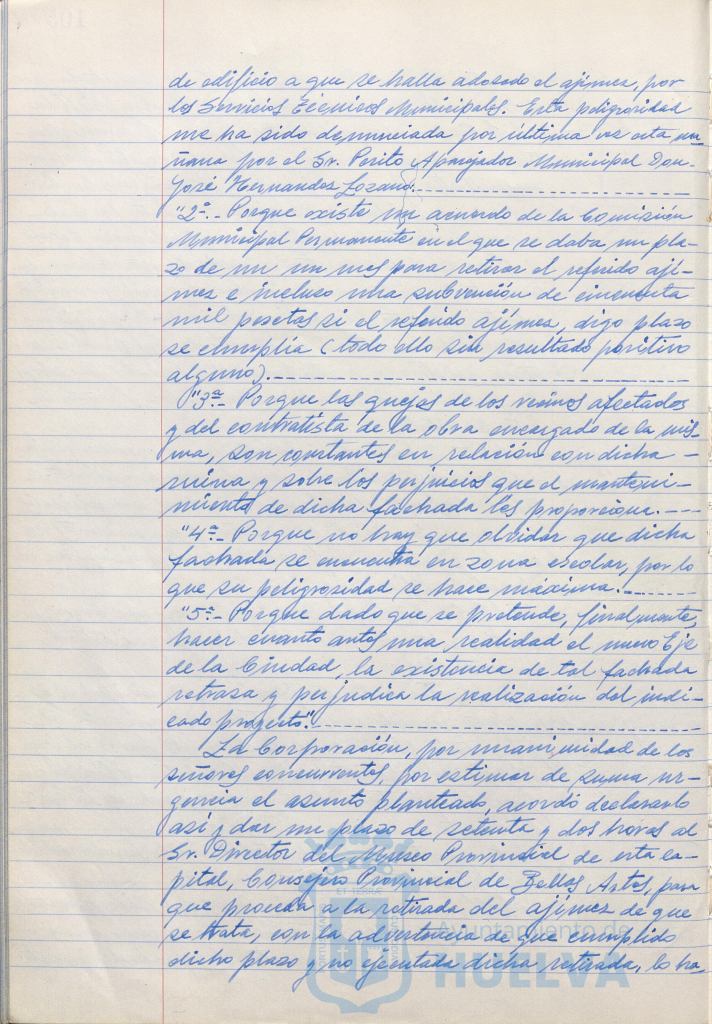 de edificio a que se halla adosado el ajimez, por
los Servicios Técnicos Municipales. Esta peligrosidad
me ha sido denunciada por última vez esta ma-
ñana por el Sr. Perito Aparejador Municipal Don-
José Hernandez Lozano.
"2ª.- Porque existe un acuerdo de la Comisión
Municipal Permanente en el que se daba un pla-
zo de un un mes para retirar el referido ají-
mez e incluso una subvención de cincuenta
mil pesetas si el referido ajímez, digo plazo
se cumplía (todo ello sin resultado positivo
alguno).
"3ª.- Porque las quejas de los vecinos afectados
y del contratista de la obra encargado de la mis-
ma, son constantes en relación con dicha -
ruina y sobre los perjuicios que el manteni-
miento de dicha fachada les proporciona.
"4ª.- Porque no hay que olvidar que dicha
fachada se encuentra en zona escolar, por lo
que su peligrosidad se hace máxima.
"5ª.- Porque dado que se pretende, finalmente,
hacer cuanto antes una realidad el nuevo Eje
de la Ciudad, la existencia de tal fachada
retrasa y perjudica la realización del indi-
cado proyecto".
La Corporación, por unanimidad de los
señores concurrentes, por estimar de suma ur-
gencia el asunto planteado, acordó declararlo
así y dar un plazo de setenta y dos horas al
Sr. Director del Museo Provincial de esta ca-
pital, Consejero Provincial de Bellas Artes, para
que proceda a la retirada del ajimez de que
se trata, con la advertencia de que cumplido
dicho plazo y no ejecutada dicha retirada, lo ha-
Ayuntamiento de
HUELVA